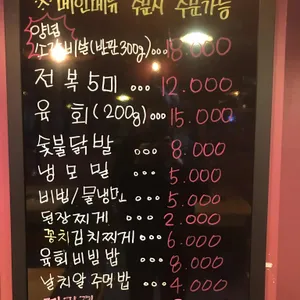 메인메뉴 주문시 주문가능
양념
소갈비살(반판300g) 18.000
전복 5미 ... 12.000
육회 (200g) ... 15.000
숯불닭발 ... 8.000
냉모밀 ... 5.000
비빔/물냉면 ... 5.000
된장찌게 ... 2.000
꽁치김치찌게 ... 6.000
육회비빔밥 ... 8.000
날치알 주먹밥 ... 4.000